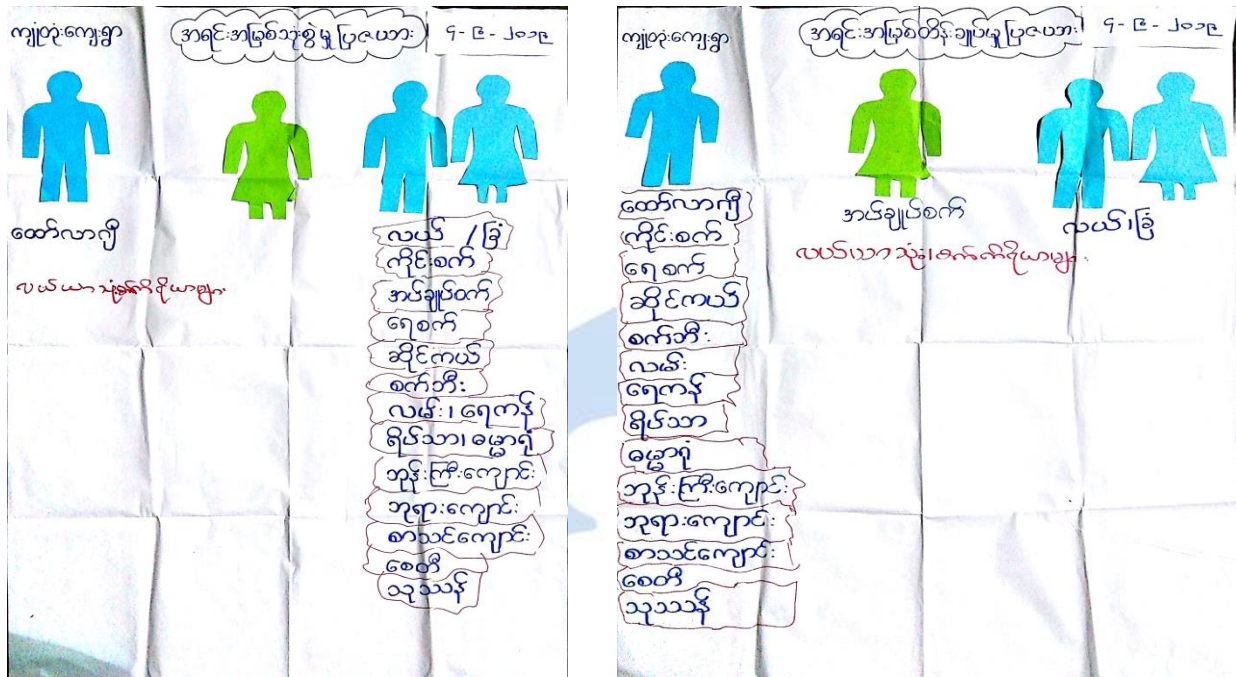 ကျုံတုံးကျေးရွာ
အရင်းအမြစ်သုံးစွဲမှုပြဇယား
၄-၉-၂၀၁၉
ထော်လာဂျီ
လယ်ယာသုံးစက်ကိရိယာများ
လယ် / ခြံ
ကိုင်းစက်
အပ်ချုပ်စက်
ရေစက်
ဆိုင်ကယ်
စက်ဘီး
လမ်း၊ ရေကန်
ရိပ်သာ၊ ဓမ္မာရုံ
ဘုန်းကြီးကျောင်း
ဘုရားကျောင်း
စာသင်ကျောင်း
စေတီ
သုဿန်
ကျုံတုံးကျေးရွာ
အရင်းအမြစ်ထိန်းချုပ်မှုပြဇယား
၄-၉-၂၀၁၉
ထော်လာဂျီ
ကိုင်းစက်
ရေစက်
ဆိုင်ကယ်
စက်ဘီး
လမ်း
ရေကန်
ရိပ်သာ
ဓမ္မာရုံ
ဘုန်းကြီးကျောင်း
ဘုရားကျောင်း
စာသင်ကျောင်း
စေတီ
သုဿန်
အပ်ချုပ်စက်
လယ်ယာသုံးစက်ကိရိယာများ
လယ်၊ခြံ